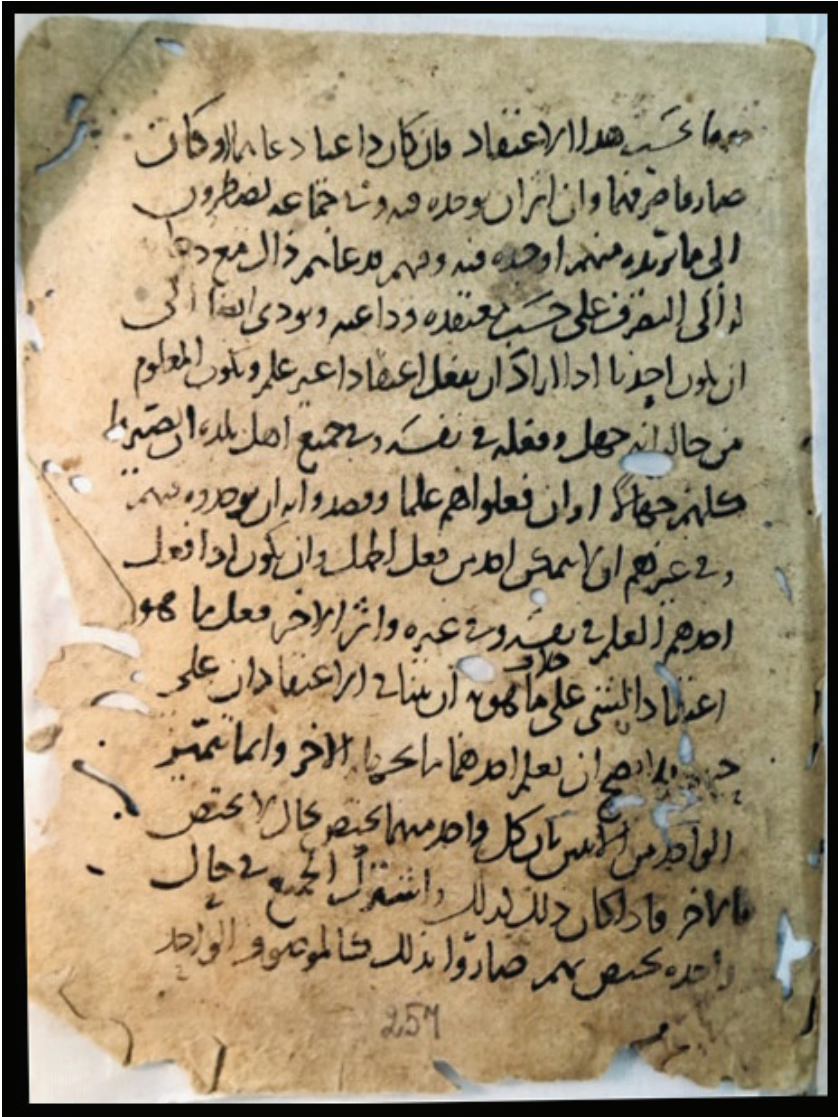 ما بحسب هذا الاعتقاد فان كان داعيا دعاهم او كان
صارفا صرفهما وان اثر ان يوجده فيه وفي جماعه يضطرون
الى ما يريده منهم اوجده فيه وفيهم فدعاهم ذلك مع
او الى التصرف على حسب معتقده ودواعيه ويودي ايضا الى
ان يكون احدنا اذا اراد ان يفعل اعتقادا غير علم ويكون المعلوم
من حاله انه جهل وفعله في نفسه وفي جميع اهل بلده ان يصيروا
كلهم جهالا او ان فعلوا هم علما وقصدوا به ان يوجدوه فيهم
وفي غيرهم ان لا يتمكن احد من فعل الجهل وان يكون اذا فعل
احدهم العلم في نفسه وفي غيره واثر الاخر فعل ما هو
اعتقاد الشي على خلاف ما هو به ان يتنافى الاعتقادان على
ان يعلم احدهما ما يجهله الاخر وانما يتميز
الواحد من الاثنين بان كل واحد منهما يختص بحال لا يختص
بها الاخر فاذا كان ذلك كذلك واشترك الجميع في حال
واحده يختص بهم صاروا بذلك
257